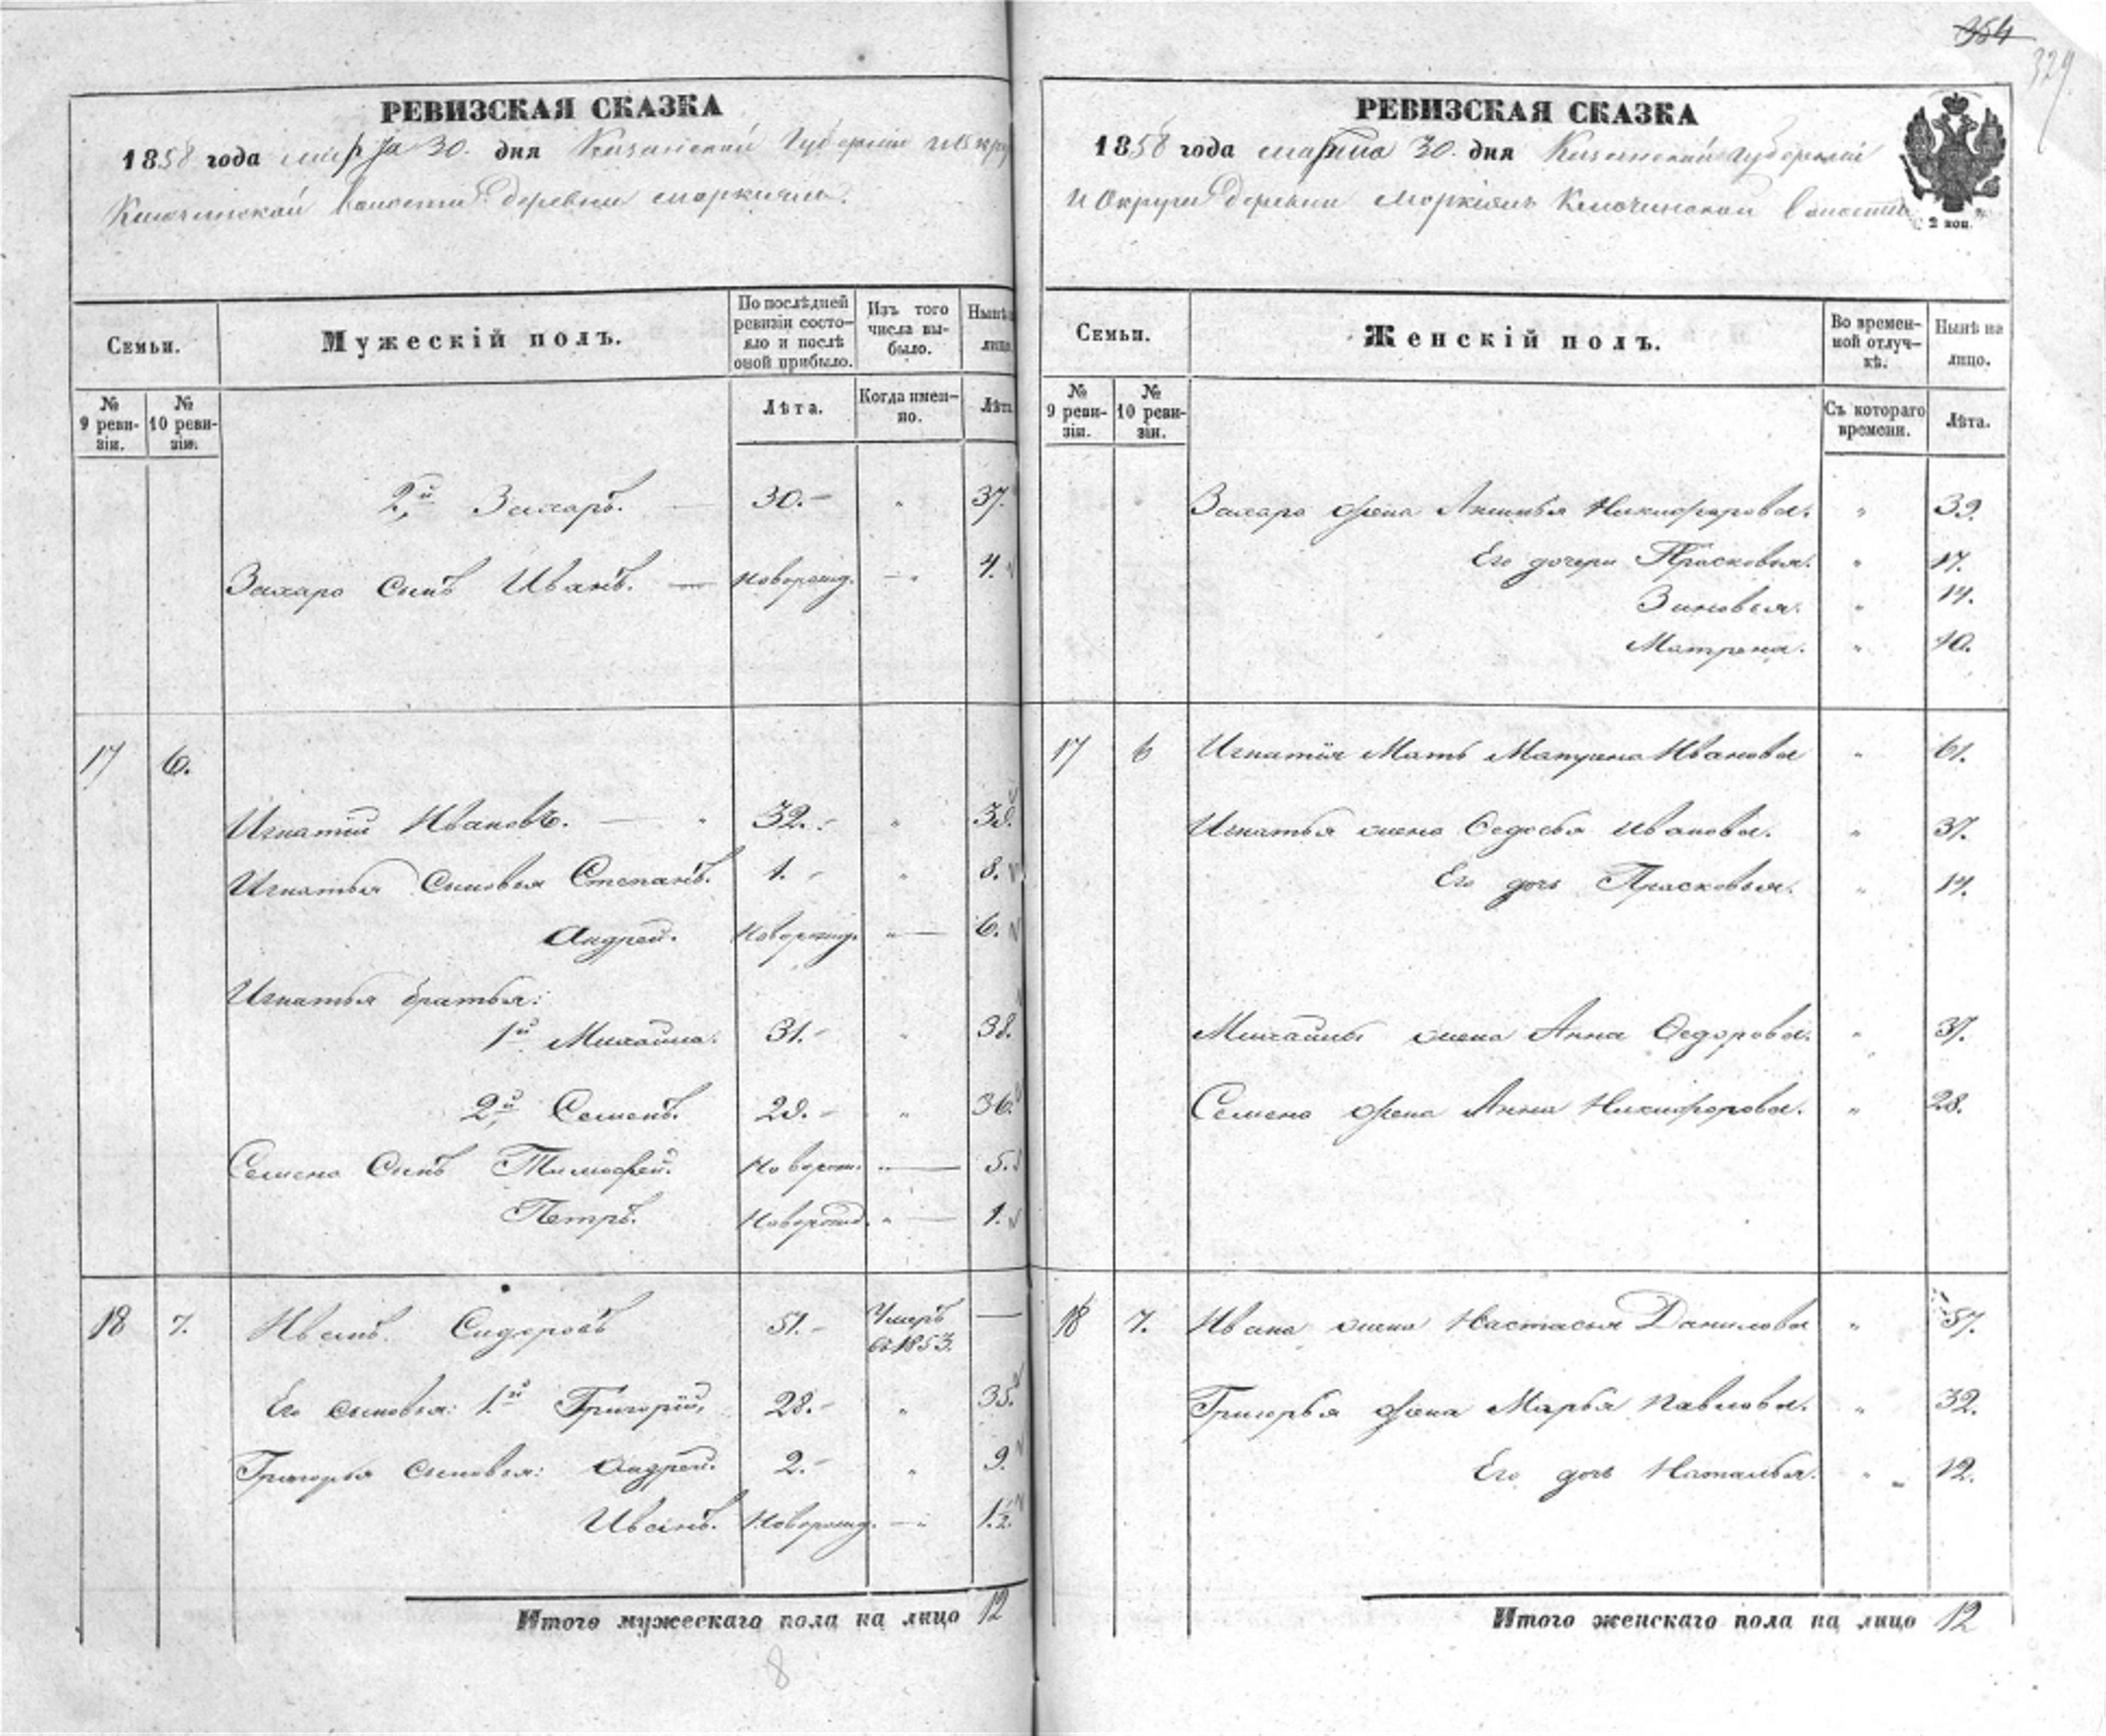 954
329.
РЕВИЗСКАЯ СКАЗКА
1858 года марта 30. дня Казанской Губерніи и Окру
Ключинской волости деревни моркиялъ.
Семьи.
Мужескій полъ.
По послѣдней ревизіи состояло и послѣ оной прибыло.
Изъ того числа выбыло.
Нынѣ на лицо.
№ 9 ревизіи.
№ 10 ревизіи.
Лѣта.
Когда именно.
Лѣта
2й Захаръ. — 30.- " 37.
Захара сынъ Иванъ. — Новорожд. — " 4.
17 6.
Игнатій Ивановъ. — " 32.- " 39.
Игнатья Сыновья Степанъ. 1.- " 8.
Андрей. Новорожд. " — 6.
Игнатья братья:
1й Михайла. 31.- " 38.
2й Семенъ. 29.- " 36.
Семена Сынъ Тимофей. Новорож. " — 5.
Петръ. Новорожд. " — 1.
18 7. Иванъ Сидоровъ 51.- Умеръ въ 1853. —
Его сыновья: 1й Григорій, 28.- " 35.
Григорья сыновья: Андрей. 2.- " 9.
Иванъ. Новорожд. — " 1½.
Итого мужескаго пола на лицо 12
8
РЕВИЗСКАЯ СКАЗКА
1858 года марта 30. дня Казанской губерніи
и Округи деревни моркиялъ Ключинской волости
2 коп.
Семьи.
Женскій полъ.
Во временной отлучкѣ.
Нынѣ на лицо.
№ 9 ревизіи.
№ 10 ревизіи.
Съ котораго времени.
Лѣта.
Захара жена Аксинья Никифорова. " 39.
Его дочери Прасковья. " 17.
Зиновья. " 14.
Матрена. " 10.
17 6 Игнатія Мать Матрена Иванова " 61.
Игнатья жена Федосья Иванова. " 37.
Его дочь Прасковья. " 14.
Михайлы жена Анна Федорова. " 37.
Семена жена Анна Никифорова. " 28.
18 7. Ивана жена Настасья Данилова " 57.
Григорья жена Марья Павлова. " 32.
Его дочь Наталья. " 12.
Итого женскаго пола на лицо 12